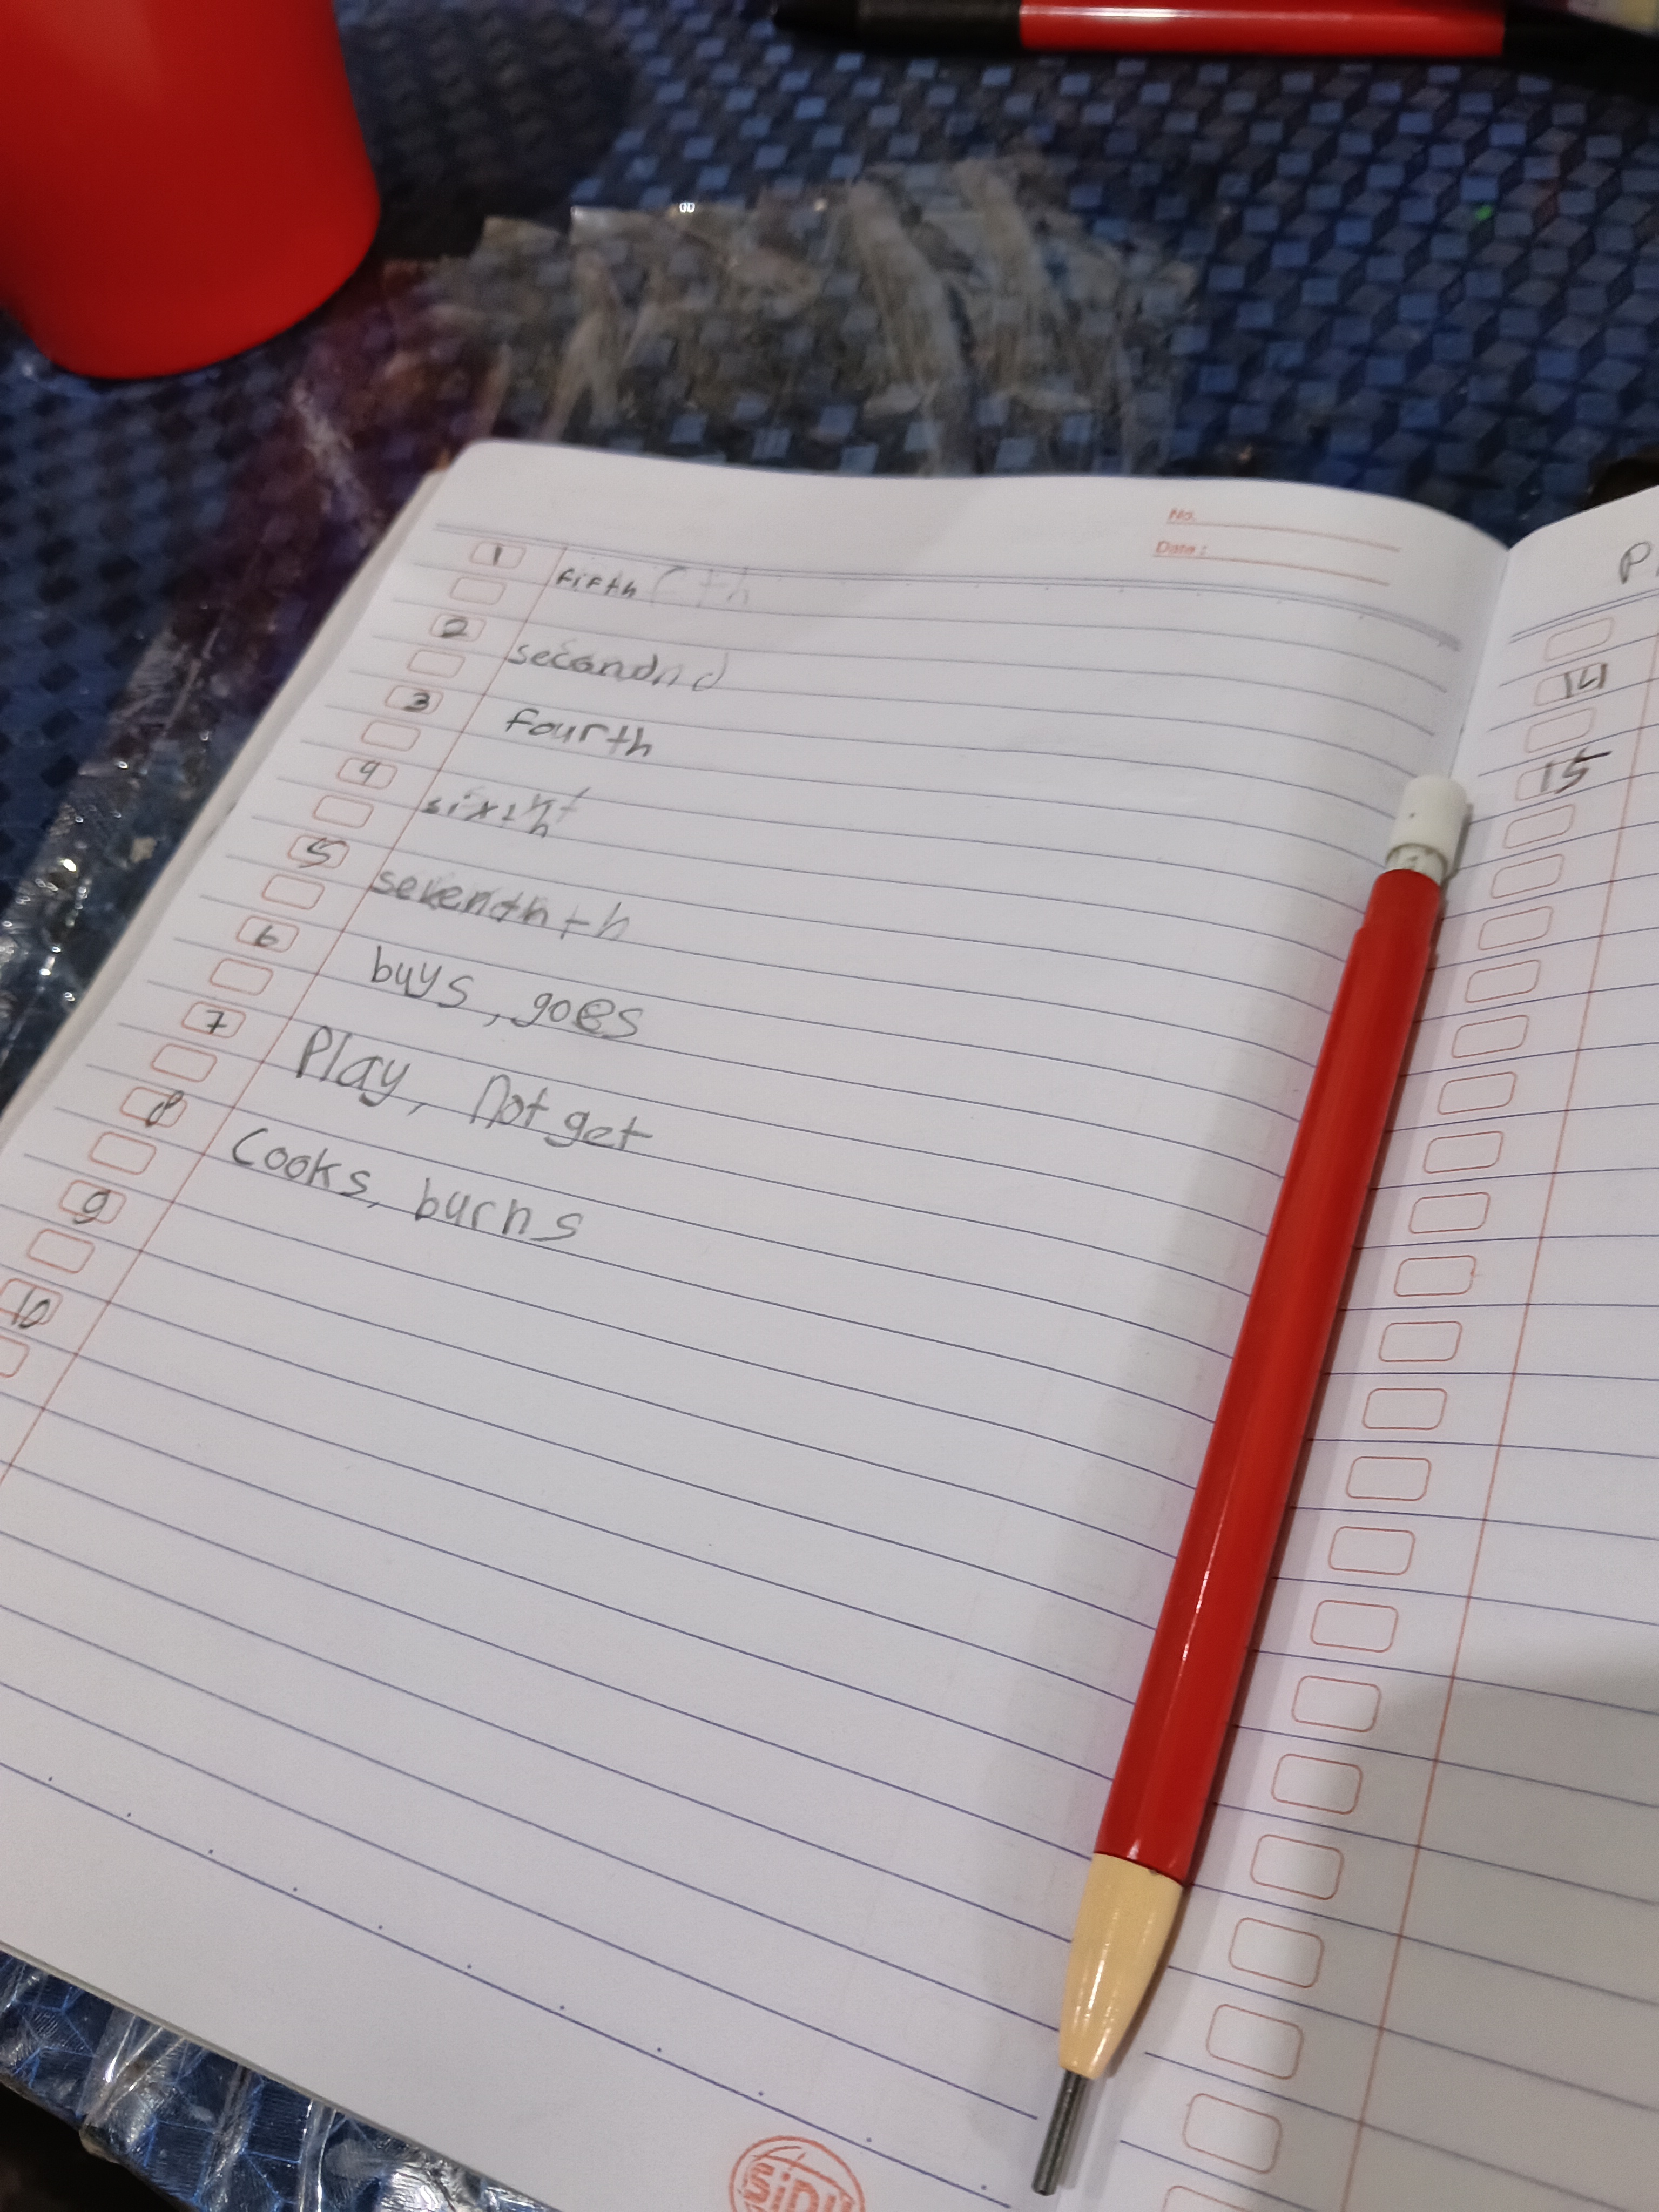 No.
Date :
1 fifth
2 second
3 fourth
4 sixth
5 seventh
6 buys, goes
7 Play, not get
8 Cooks, burns
9
10
14
15
SiDU